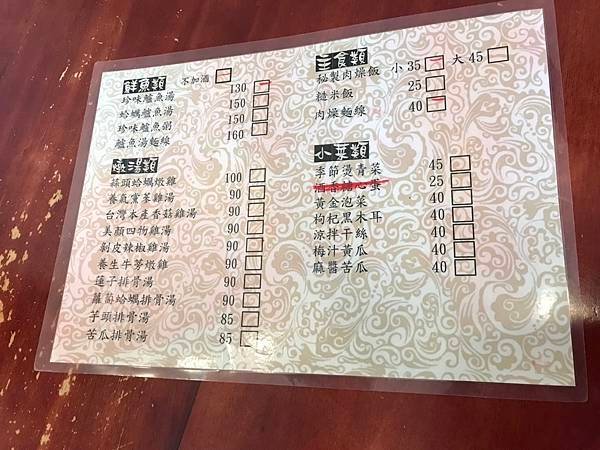 鮮魚類 不加酒
珍味鱸魚湯 130
蛤蠣鱸魚湯 150
珍味鱸魚粥 150
鱸魚湯麵線 160
燉湯類
蒜頭蛤蠣燉雞 100
養氣黨蔘雞湯 90
台灣本產香菇雞湯 90
美顏四物雞湯 90
剝皮辣椒雞湯 90
養生牛蒡燉雞 90
蓮子排骨湯 90
蘿蔔蛤蠣排骨湯 90
芋頭排骨湯 85
苦瓜排骨湯 85
主食類
秘製肉燥飯 小35 大45
糙米飯 25
肉燥麵線 40
小菜類
季節燙青菜 45
酒香糖心蛋 25
黃金泡菜 40
枸杞黑木耳 40
涼拌干絲 40
梅汁黃瓜 40
麻醬苦瓜 40